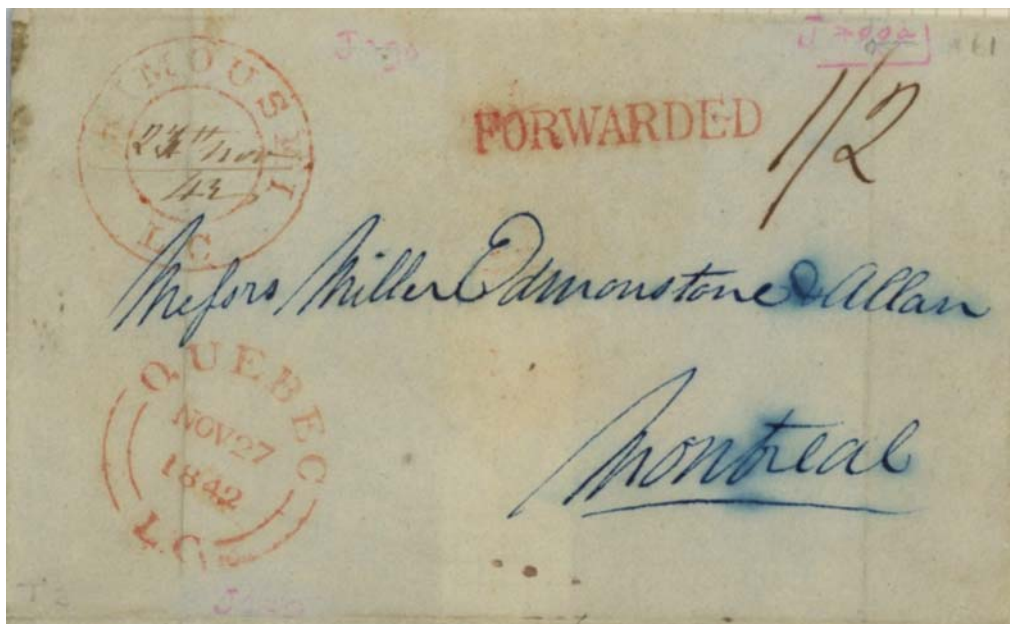 RIMOUSKI
L.C
FORWARDED
1/2
Messrs Miller Edmonstone & Allan
Montreal
QUEBEC
NOV 27
1842
L.C